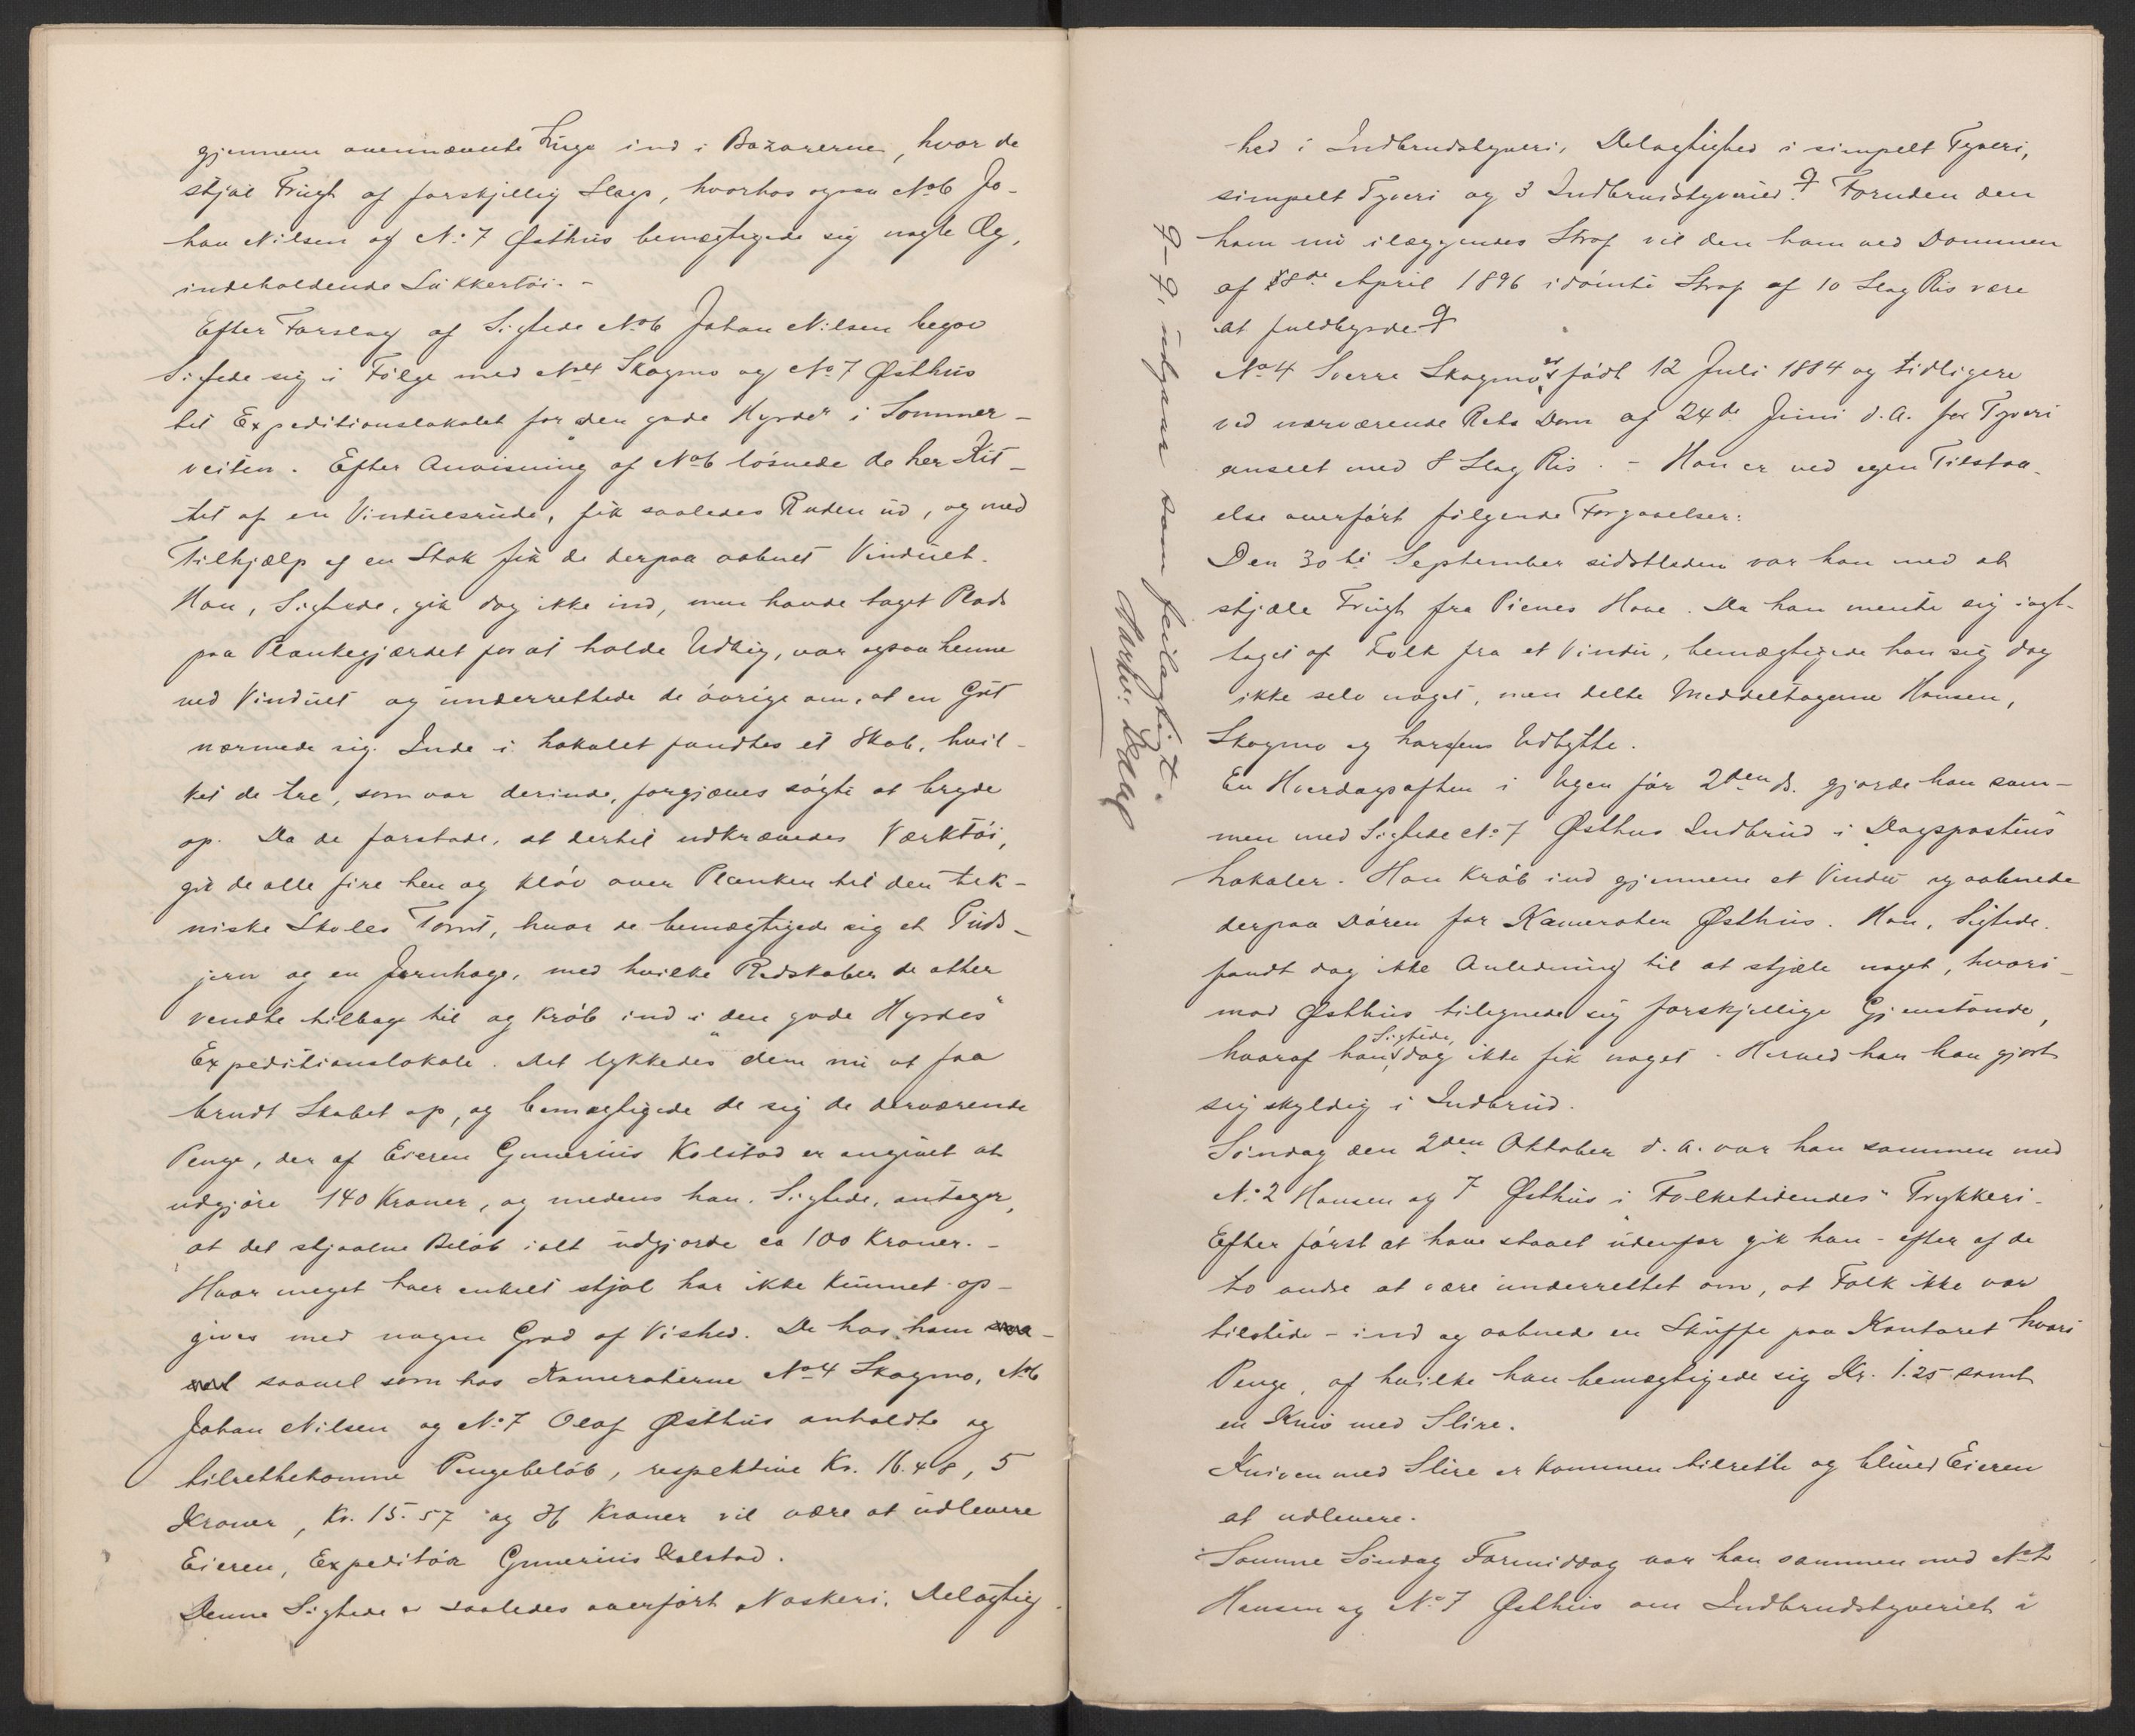 gjennem ovennævnte Luge ind i Bazarerne, hvor de
stjal Frugt af forskjellig Slags, hvorhos ogsaa No 6 Jo-
han Nilsen og No: 7 Østhus bemægtigede sig nogle Æg,
indeholdende Sukkertöi. -
Efter Forslag af Sigtede No 6 Johan Nilsen begav
Sigtede sig i Fölge med No 4 Skogmo og No 7 Østhus
til Expeditionslokalet for „den gode Hyrde" i Sommer-
veiten. Efter Anvisning af No 6 lösnede de her Kit-
tet af en Vinduesrude, fik saaledes Ruden ud, og med
Tilhjælp af en Stok fik de derpaa aabnet Vinduet.
Han, Sigtede, gik dog ikke ind, men havde taget Plads
paa Plankegjærdet for at holde Udkig, var ogsaa henne
ved Vinduet og underrettede de övrige om, at en Gut
nærmede sig. Inde i Lokalet fandtes et Skab, hvil-
ket de tre, som var derinde, forgjæves sögte at bryde
op. Da de forstode, at dertil udkrævedes Værktöi,
gik de alle fire hen og klöv over Planken til den tek-
niske Skoles Tomt, hvor de bemægtigede sig et Puds-
jern og en Jernhage, med hvilke Redskaber de atter
vendte tilbage til og kröb ind i „den gode Hyrdes"
Expeditionslokale. Det lykkedes dem nu at faa
brudt Skabet op, og bemægtigede de sig de derværende
Penge, der af Eieren Gunerius Kolstad er angivet at
udgjöre 140 Kroner, og medens han, Sigtede, antager,
at det stjaalne Belöb ialt udgjorde ca 100 Kroner. -
Hvor meget hver enkelt stjal har ikke kunnet op-
gives med nogen Grad af Vished. De hos ham
saavel som hos Kameraterne No 4 Skogmo, No 6
Johan Nilsen og No: 7 Olaf Østhus anholdte og
tilrettekomne Pengebelöb, respektive Kr. 16.48, 5
Kroner, Kr. 15.57 og Kroner vil være at udlevere
Eieren, Expeditör Gunerius Kolstad.
Denne Sigtede er saaledes overfört Naskeri, Delagtig-
hed i Indbrudstyveri, Delagtighed i simpelt Tyveri,
simpelt Tyveri og 3 Indbrudstyverier. Foruden den
ham nu ilæggendes Straf vil den ham ved Dommen
af 18de April 1896 idömte Straf af 10 Slag Ris være
at fuldbyrde.
No 4 Sverre Skogmo er födt 12 Juli 1884 og tidligere
ved nærværende Rets Dom af 24de Juni d. A. for Tyveri
anseet med 8 Slag Ris. - Han er ved egen Tilstaa-
else overfört fölgende Forgaaelser:
Den 30te September sidstleden var han med at
stjæle Frugt fra Pienes Have. Da han mente sig iagt-
taget af Folk fra et Vindu, bemægtigede han sig dog
ikke selv noget, men delte Meddeltagerne Hansen,
Skogmo og Udbytte.
En Hverdagsaften i Ugen för 2den ds. gjorde han sam-
men med Sigtede No: 7 Østhus Indbrud i „Dagspostens"
Lokaler. Han kröb ind gjennem et Vindu og aabnede
derpaa Dören for Kameraten Østhus. Han, Sigtede,
fandt dog ikke Anledning til at stjæle noget, hvori-
mod Østhus tilegnede sig forskjellige Gjenstande,
hvoraf han, Sigtede, dog ikke fik noget. Herved har han gjort
sig skyldig i Indbrud.
Söndag den 2den Oktober d. A. var han sammen med
No: 2 Hansen og 7 Østhus i „Folketidendes" Trykkeri.
Efter först at have staaet udenfor gik han - efter af de
to andre at være underrettet om, at Folk ikke var
tilstede - ind og aabnede en Skuffe paa Kontoret hvori
Penge, af hvilke han bemægtigede sig Kr. 1.25 samt
en Kniv med Slire.
Kniven med Slire er kommen tilrette og bliver Eieren
at udlevere.
Samme Söndag Formiddag var han sammen med No 2
Hansen og No: 7 Østhus om Indbrudstyveriet i
udgaar som feilagtigt.